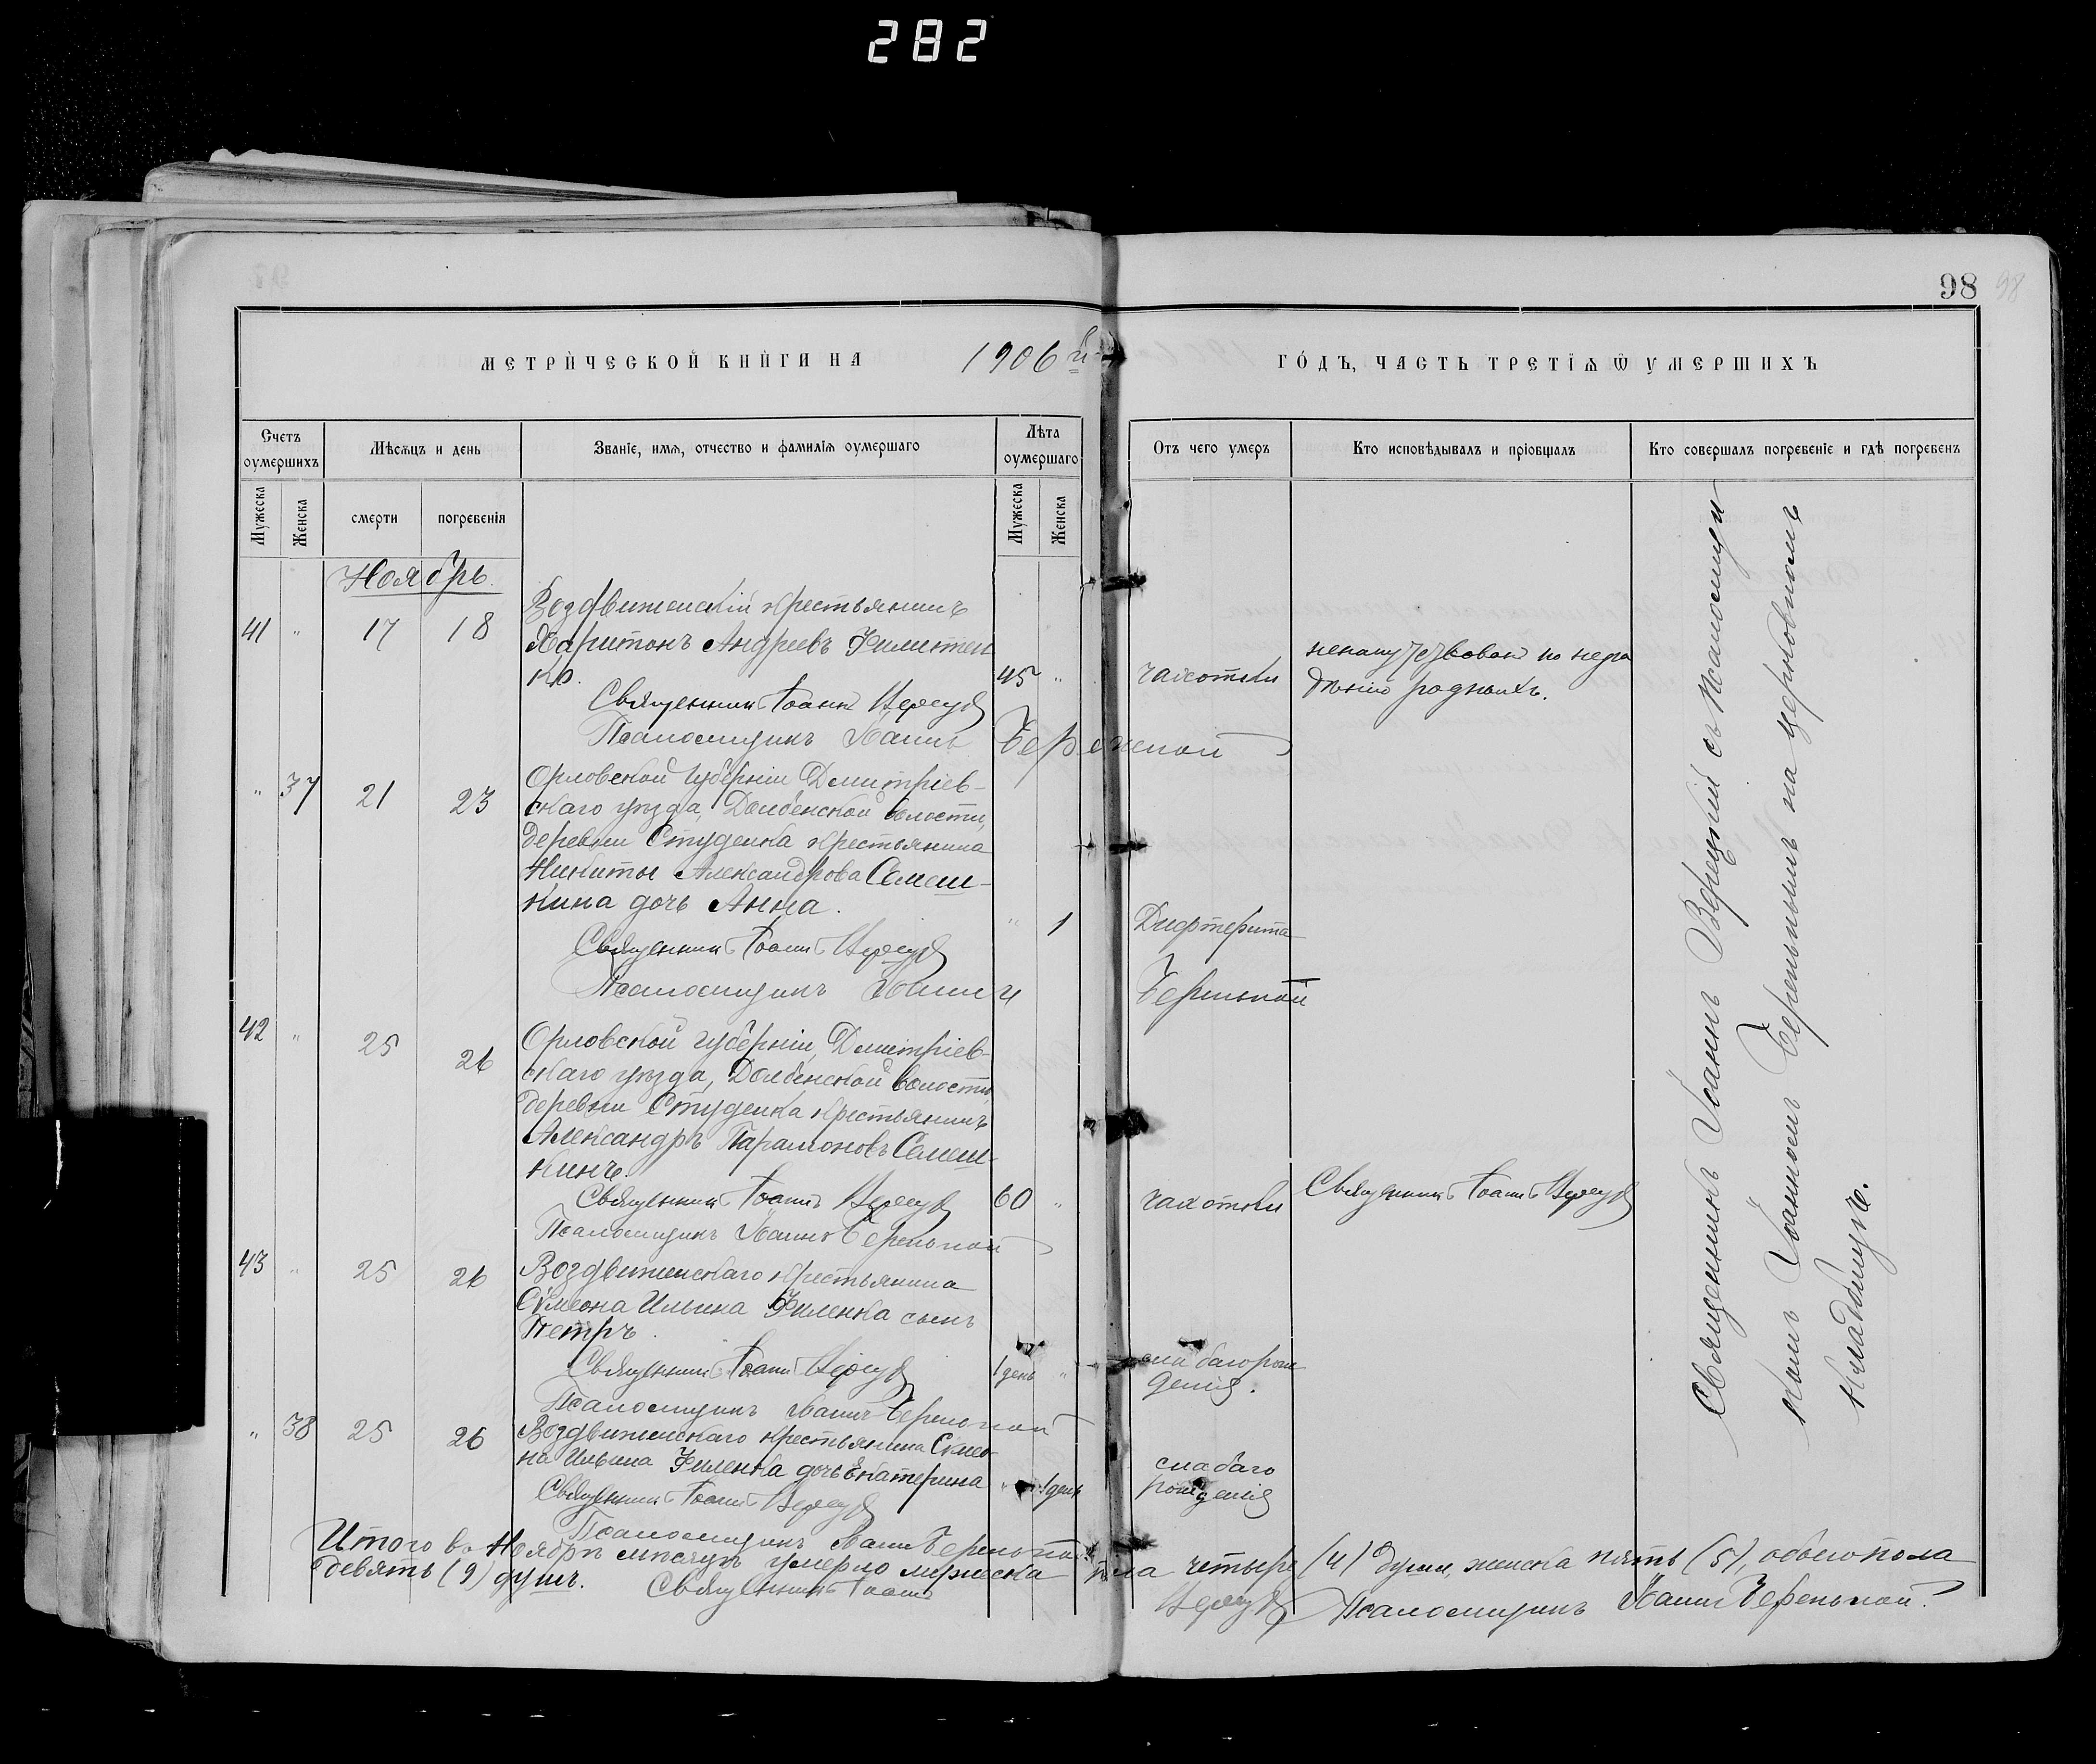 282
98 98
МЕТРИЧЕСКОЙ КНИГИ НА 1906й ГОДЪ, ЧАСТЬ ТРЕТІѦ Ѿ УМЕРШИХЪ
Счетъ оумершихъ
Мѣсѧцъ и день
Званіе, имѧ, отчество и фамиліѧ оумершаго
Лѣта оумершаго
Отъ чего умеръ
Кто исповѣдывалъ и пріобщалъ
Кто совершалъ погребеніе и гдѣ погребенъ
Мужеска
Женска
смерти
погребенія
Мужеска
Женска
Ноябрь.
41 " 17 18
Воздвиженскій крестьянинъ
Харитонъ Андреевъ
ко.
45 "
чахотки
по нера
дѣнію родныхъ.
Священникъ Іоаннъ
Псаломщикъ Іоаннъ
" 37 21 23
Орловской губерніи Дмитріев-
скаго уѣзда, Долбенской волости,
деревни Студенка крестьянина
Никиты Александрова Семеш-
кина дочь Анна.
" 1
Дифтерита
Священникъ Іоаннъ
Псаломщикъ Іоаннъ
42 " 25 26
Орловской губерніи, Дмитріев-
скаго уѣзда, Долбенской волости
деревни Студенка крестьянинъ
Александръ Парамоновъ Семеш-
кинъ.
60 "
чахотки
Священникъ Іоаннъ
Священникъ Іоаннъ
Псаломщикъ Іоаннъ
43 " 25 26
Воздвиженскаго крестьянина
Сѵмеона Ильина Филенка сынъ
Петръ.
1 день "
слабаго рож
денія.
Священникъ Іоаннъ
Псаломщикъ Іоаннъ
" 38 25 26
Воздвиженскаго крестьянина Сѵмео-
на Ильина Филенка дочь Екатерина
" 1 день
слабаго
рожденія
Священникъ Іоаннъ
Псаломщикъ Іоаннъ
Священникъ Іоаннъ Верецкій съ псаломщи
комъ Іоанномъ на церковномъ
кладбищѣ.
Итого въ Ноябрѣ мѣсяцѣ умерло мужеска пола четыре (4) души, женска пять (5), обоего пола
девять (9) душъ. Священникъ Іоаннъ
Псаломщикъ Іоаннъ